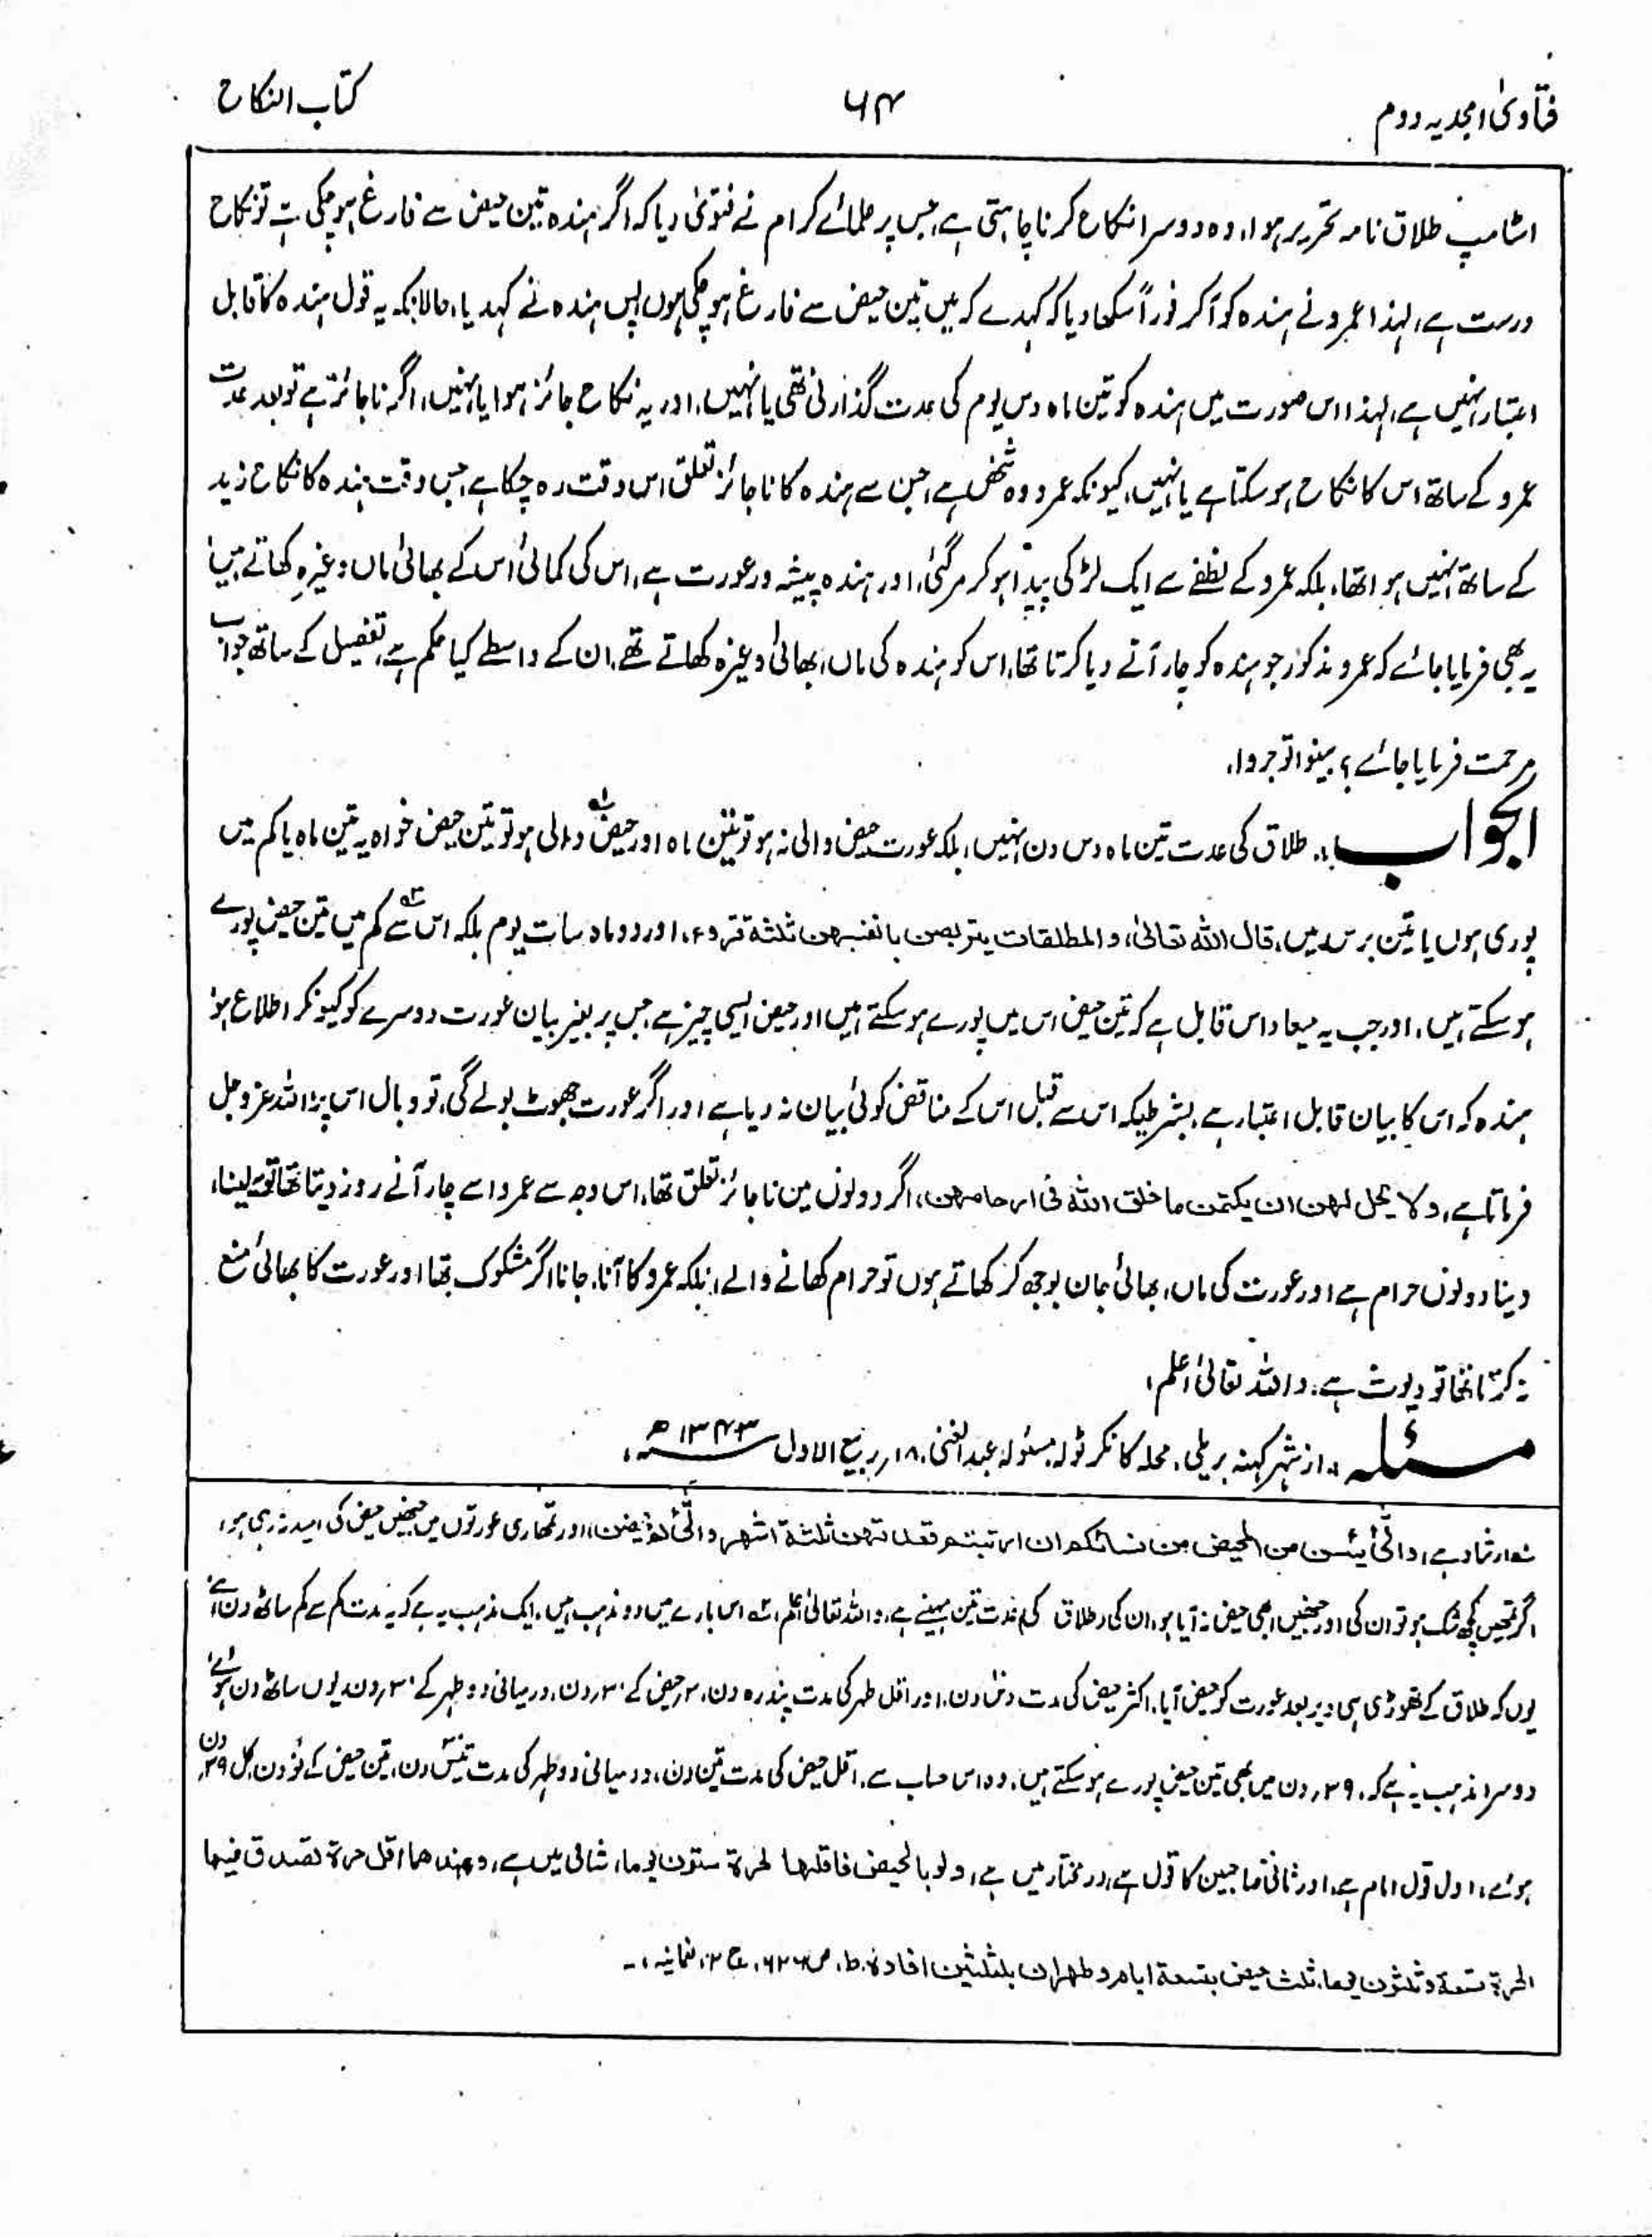 فتاویٰ امجدیہ دوم
۶۴
کتاب النکاح
اسٹامپ طلاق نامہ تحریر ہوا، وہ دوسرا نکاح کرنا چاہتی ہے، جس پر علمائے کرام نے فتویٰ دیا کہ اگر ہندہ تین حیض سے فارغ ہو چکی ہے تو نکاح
درست ہے، لہذا عمرو نے ہندہ کو آکر فوراً سکھا دیا کہ کہدے کہ میں تین حیض سے فارغ ہو چکی ہوں پس ہندہ نے کہدیا، حالانکہ یہ قول ہندہ کا قابل
اعتبار نہیں ہے، لہذا اس صورت میں ہندہ کو تین ماہ دس یوم کی عدت گذارنی تھی یا نہیں، اور یہ نکاح جائز ہوا یا نہیں، اگر ناجائز ہے تو بعد عدت
عمرو کے ساتھ اس کا نکاح ہو سکتا ہے یا نہیں، کیونکہ عمرو وہ شخص ہے، جن سے ہندہ کا ناجائز تعلق اس وقت رہ چکا ہے، جس وقت ہندہ کا نکاح زید
کے ساتھ نہیں ہوا تھا، بلکہ عمرو کے نطفے سے ایک لڑکی پیدا ہو کر مرگئی، اور ہندہ پیشہ ور عورت ہے، اس کی کمائی اس کے بھائی ماں وغیرہ کھاتے ہیں
یہ بھی فرمایا جائے کہ عمرو مذکور جو ہندہ کو چار آنے دیا کرتا تھا، اس کو ہندہ کی ماں، بھائی وغیرہ کھاتے تھے، ان کے واسطے کیا حکم ہے، تفصیل کے ساتھ جواب
مرحمت فرمایا جائے؟ بینوا توجروا،
الجواب :۔ طلاق کی عدت تین ماہ دس دن نہیں، بلکہ عورت حیض والی نہ ہو تو تین ماہ اور حیض والی ہو تو تین حیض خواہ یہ تین ماہ یا کم میں
پوری ہوں یا تین برس میں، قال اللہ تعالیٰ، والمطلقات یتربصن بانفسھن ثلثۃ قروء، اور دو ماہ سات یوم بلکہ اس سے کم میں تین حیض پورے
ہو سکتے ہیں، اور جب یہ میعاد اس قابل ہے کہ تین حیض اس میں پورے ہو سکتے ہیں اور حیض ایسی چیز ہے جس پر بغیر بیان عورت دوسرے کو کیونکر اطلاع ہو
ہندہ کہ اس کا بیان قابل اعتبار ہے، بشرطیکہ اس سے قبل اس کے مناقض کوئی بیان نہ دیا ہے اور اگر عورت جھوٹ بولے گی، تو وبال اس پر، اللہ عزوجل
فرماتا ہے، ولا یحل لھن ان یکتمن ما خلق اللہ فی ارحامھن، اگر دونوں میں ناجائز تعلق تھا، اس وجہ سے عمرو اسے چار آنے روز دیتا تھا تو یہ لینا،
دینا دونوں حرام ہے اور عورت کی ماں، بھائی جان بوجھ کر کھاتے ہوں تو حرام کھانے والے، بلکہ عمرو کا آنا، جانا اگر مشکوک تھا اور عورت کا بھائی منع
نہ کرتا تھا تو دیوث ہے، واللہ تعالیٰ اعلم،
مسئلہ :۔ از شہر کہنہ بریلی، محلہ کانکر ٹولہ مسئولہ عبدالغنی، ۱۸؍ ربیع الاول ۱۳۴۳ھ،
ارشاد ہے، والّٰئی یئسن من المحیض من نسائکم ان ارتبتم فعدتھن ثلثۃ اشھر والّٰئی لم یحضن، اور تمھاری عورتوں میں جنھیں حیض کی امید نہ رہی ہو،
اگر تمھیں کچھ شک ہو تو ان کی اور جنھیں ابھی حیض نہ آیا ہو، ان کی (طلاق کی) عدت تین مہینے ہے، واللہ تعالیٰ اعلم، اس بارے میں دو مذہب ہیں، ایک مذہب یہ ہے کہ یہ مدت کم سے کم ساٹھ دن ہے،
یوں کہ طلاق کے تھوڑی ہی دیر بعد عورت کو حیض آیا، اکثر حیض کی مدت دس دن، اور اقل طہر کی مدت پندرہ دن، ۳؍ حیض کے ۳۰؍ دن، درمیانی دو طہر کے ۳۰؍ دن، یوں ساٹھ دن ہوئے
دوسرا مذہب یہ ہے کہ، ۳۹؍ دن میں بھی تین حیض پورے ہو سکتے ہیں، وہ اس حساب سے، اقل حیض کی مدت تین دن، درمیانی دو طہر کی مدت تیس دن، تین حیض کے نو دن، کل ۳۹؍ دن
ہوئے، اول قول امام ہے، اور ثانی صاحبین کا قول ہے، در مختار میں ہے، ولو بالحیض فاقلھا لحرۃ ستون یوما، شامی میں ہے، وعندھما اقل مدۃ تصدق فیھا
الحرۃ تسعۃ وثلثون یوما، ثلث حیض بتسعۃ ایام وطھران بثلثین افادہ ط، ص ۶۲۶، ج ۲، نعمانیہ،۔